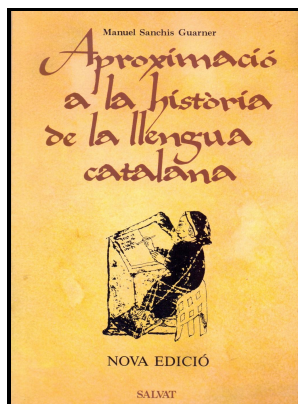 Manuel Sanchis Guarner
Aproximació
a la història
de la llengua
catalana
NOVA EDICIÓ
SALVAT